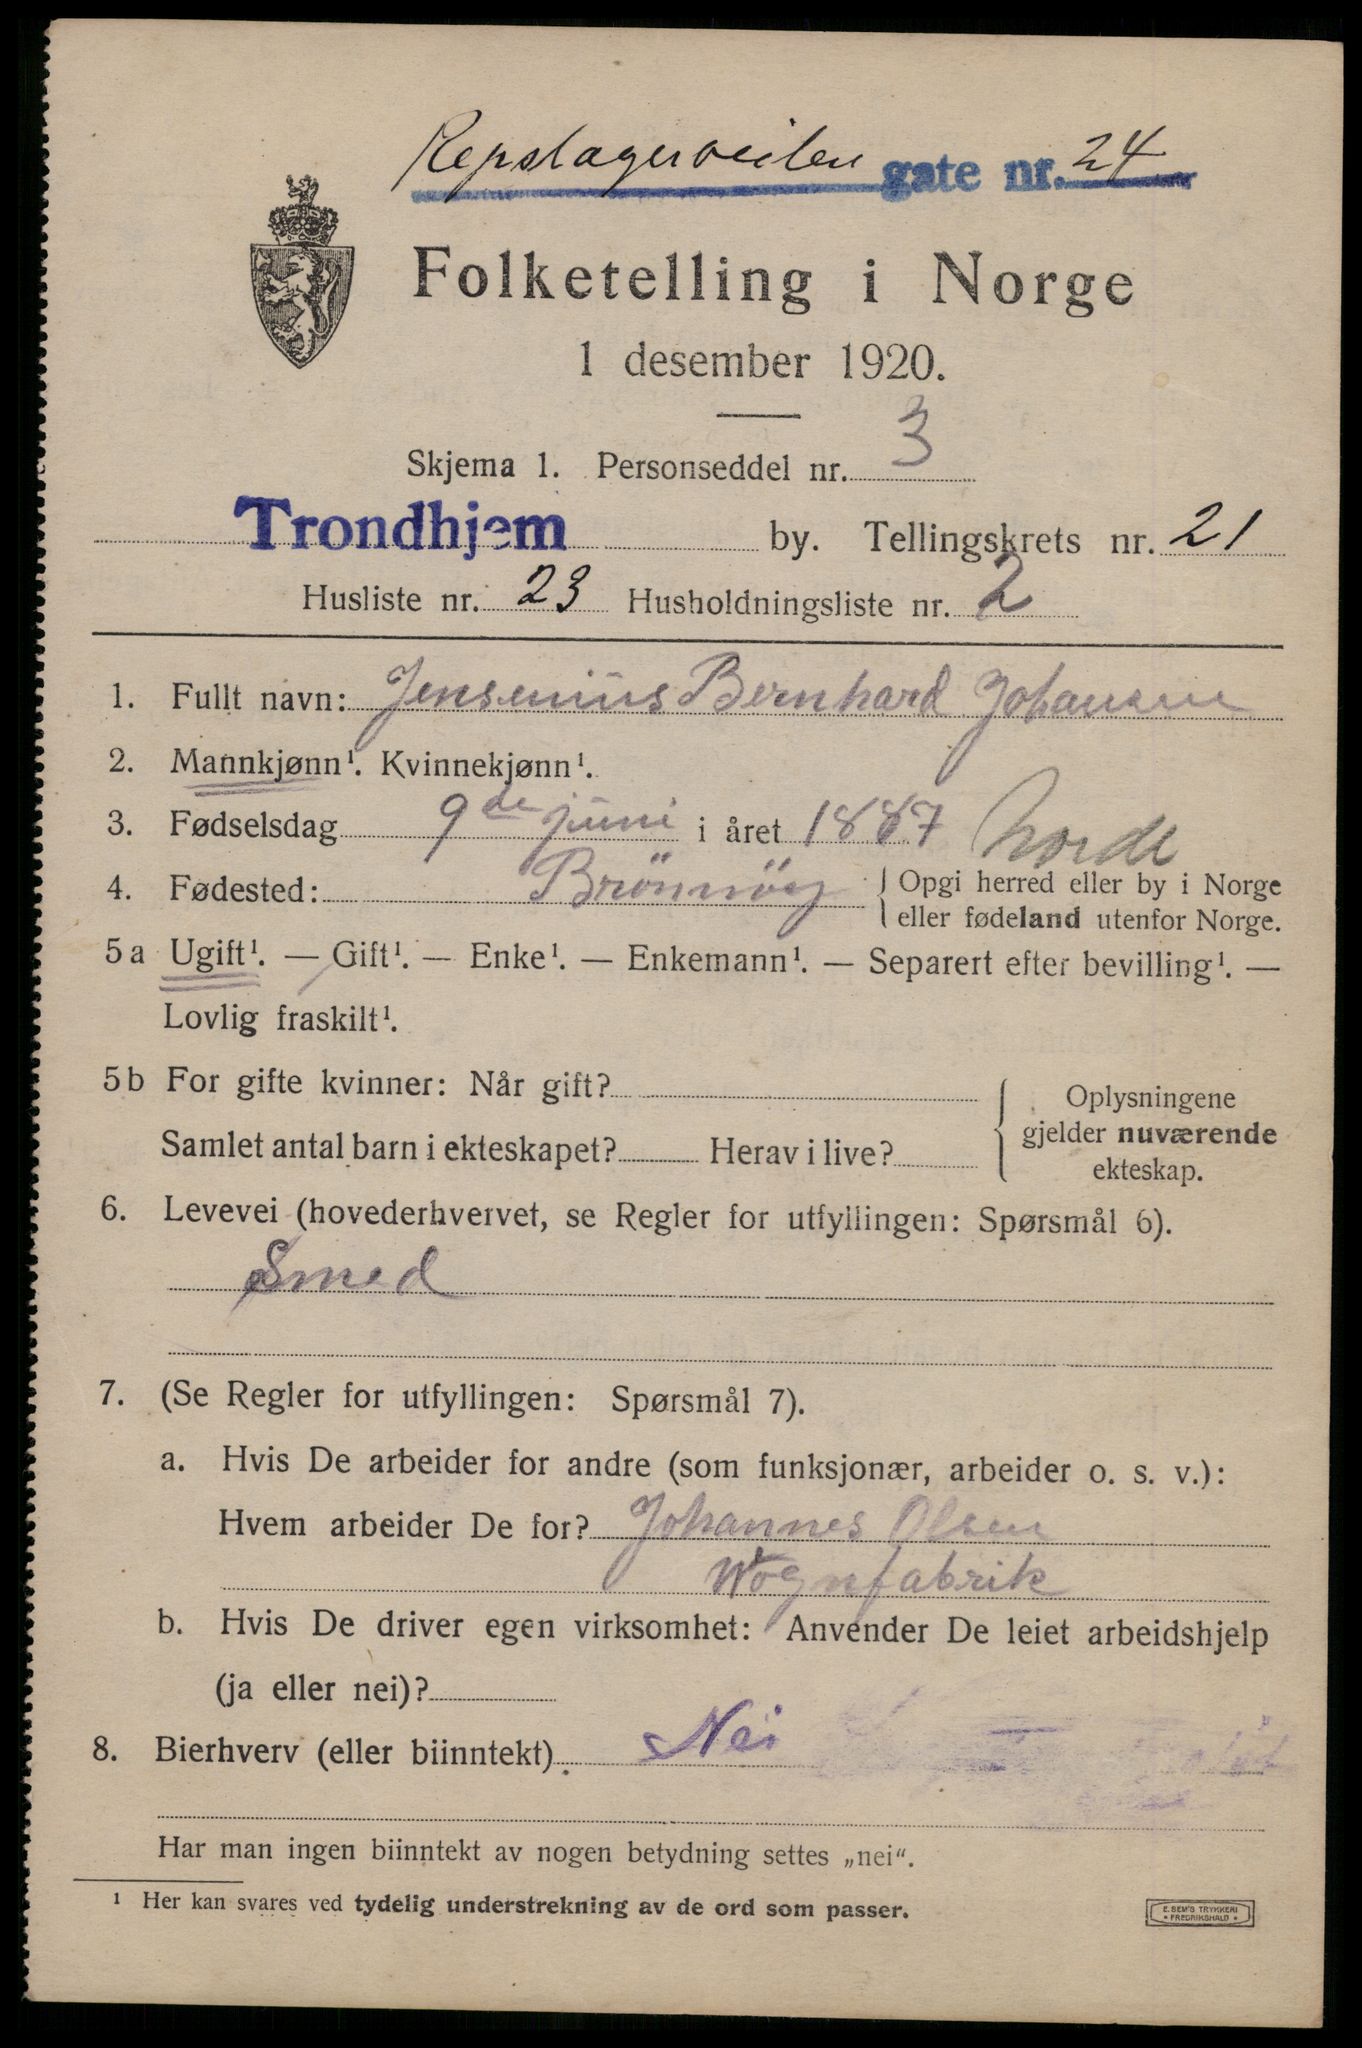 Repslagerveiten gate nr. 24
Folketelling i Norge
1 desember 1920.
Skjema 1. Personseddel nr. 3
Trondhjem by. Tellingskrets nr. 21
Husliste nr. 23 Husholdningsliste nr. 2
1. Fullt navn: Jensenius Bernhard Johansen
2. Mannkjønn¹. Kvinnekjønn¹.
3. Fødselsdag 9de juni i året 1887
4. Fødested: Brönnöy { Opgi herred eller by i Norge
eller fødeland utenfor Norge.
5a Ugift¹. — Gift¹. — Enke¹. — Enkemann¹. — Separert efter bevilling¹. —
Lovlig fraskilt¹.
5b For gifte kvinner: Når gift?
Samlet antal barn i ekteskapet? Herav i live?
{ Oplysningene
gjelder nuværende
ekteskap.
6. Levevei (hovederhvervet, se Regler for utfyllingen: Spørsmål 6).
Smed
7. (Se Regler for utfyllingen: Spørsmål 7).
a. Hvis De arbeider for andre (som funksjonær, arbeider o. s. v.):
Hvem arbeider De for? Johannes Olsen
Vognfabrik
b. Hvis De driver egen virksomhet: Anvender De leiet arbeidshjelp
(ja eller nei)?
8. Bierhverv (eller biinntekt) Nei
Har man ingen biinntekt av nogen betydning settes „nei“.
¹ Her kan svares ved tydelig understrekning av de ord som passer.
E. SEM'S TRYKKERI
• FREDRIKSHALD •